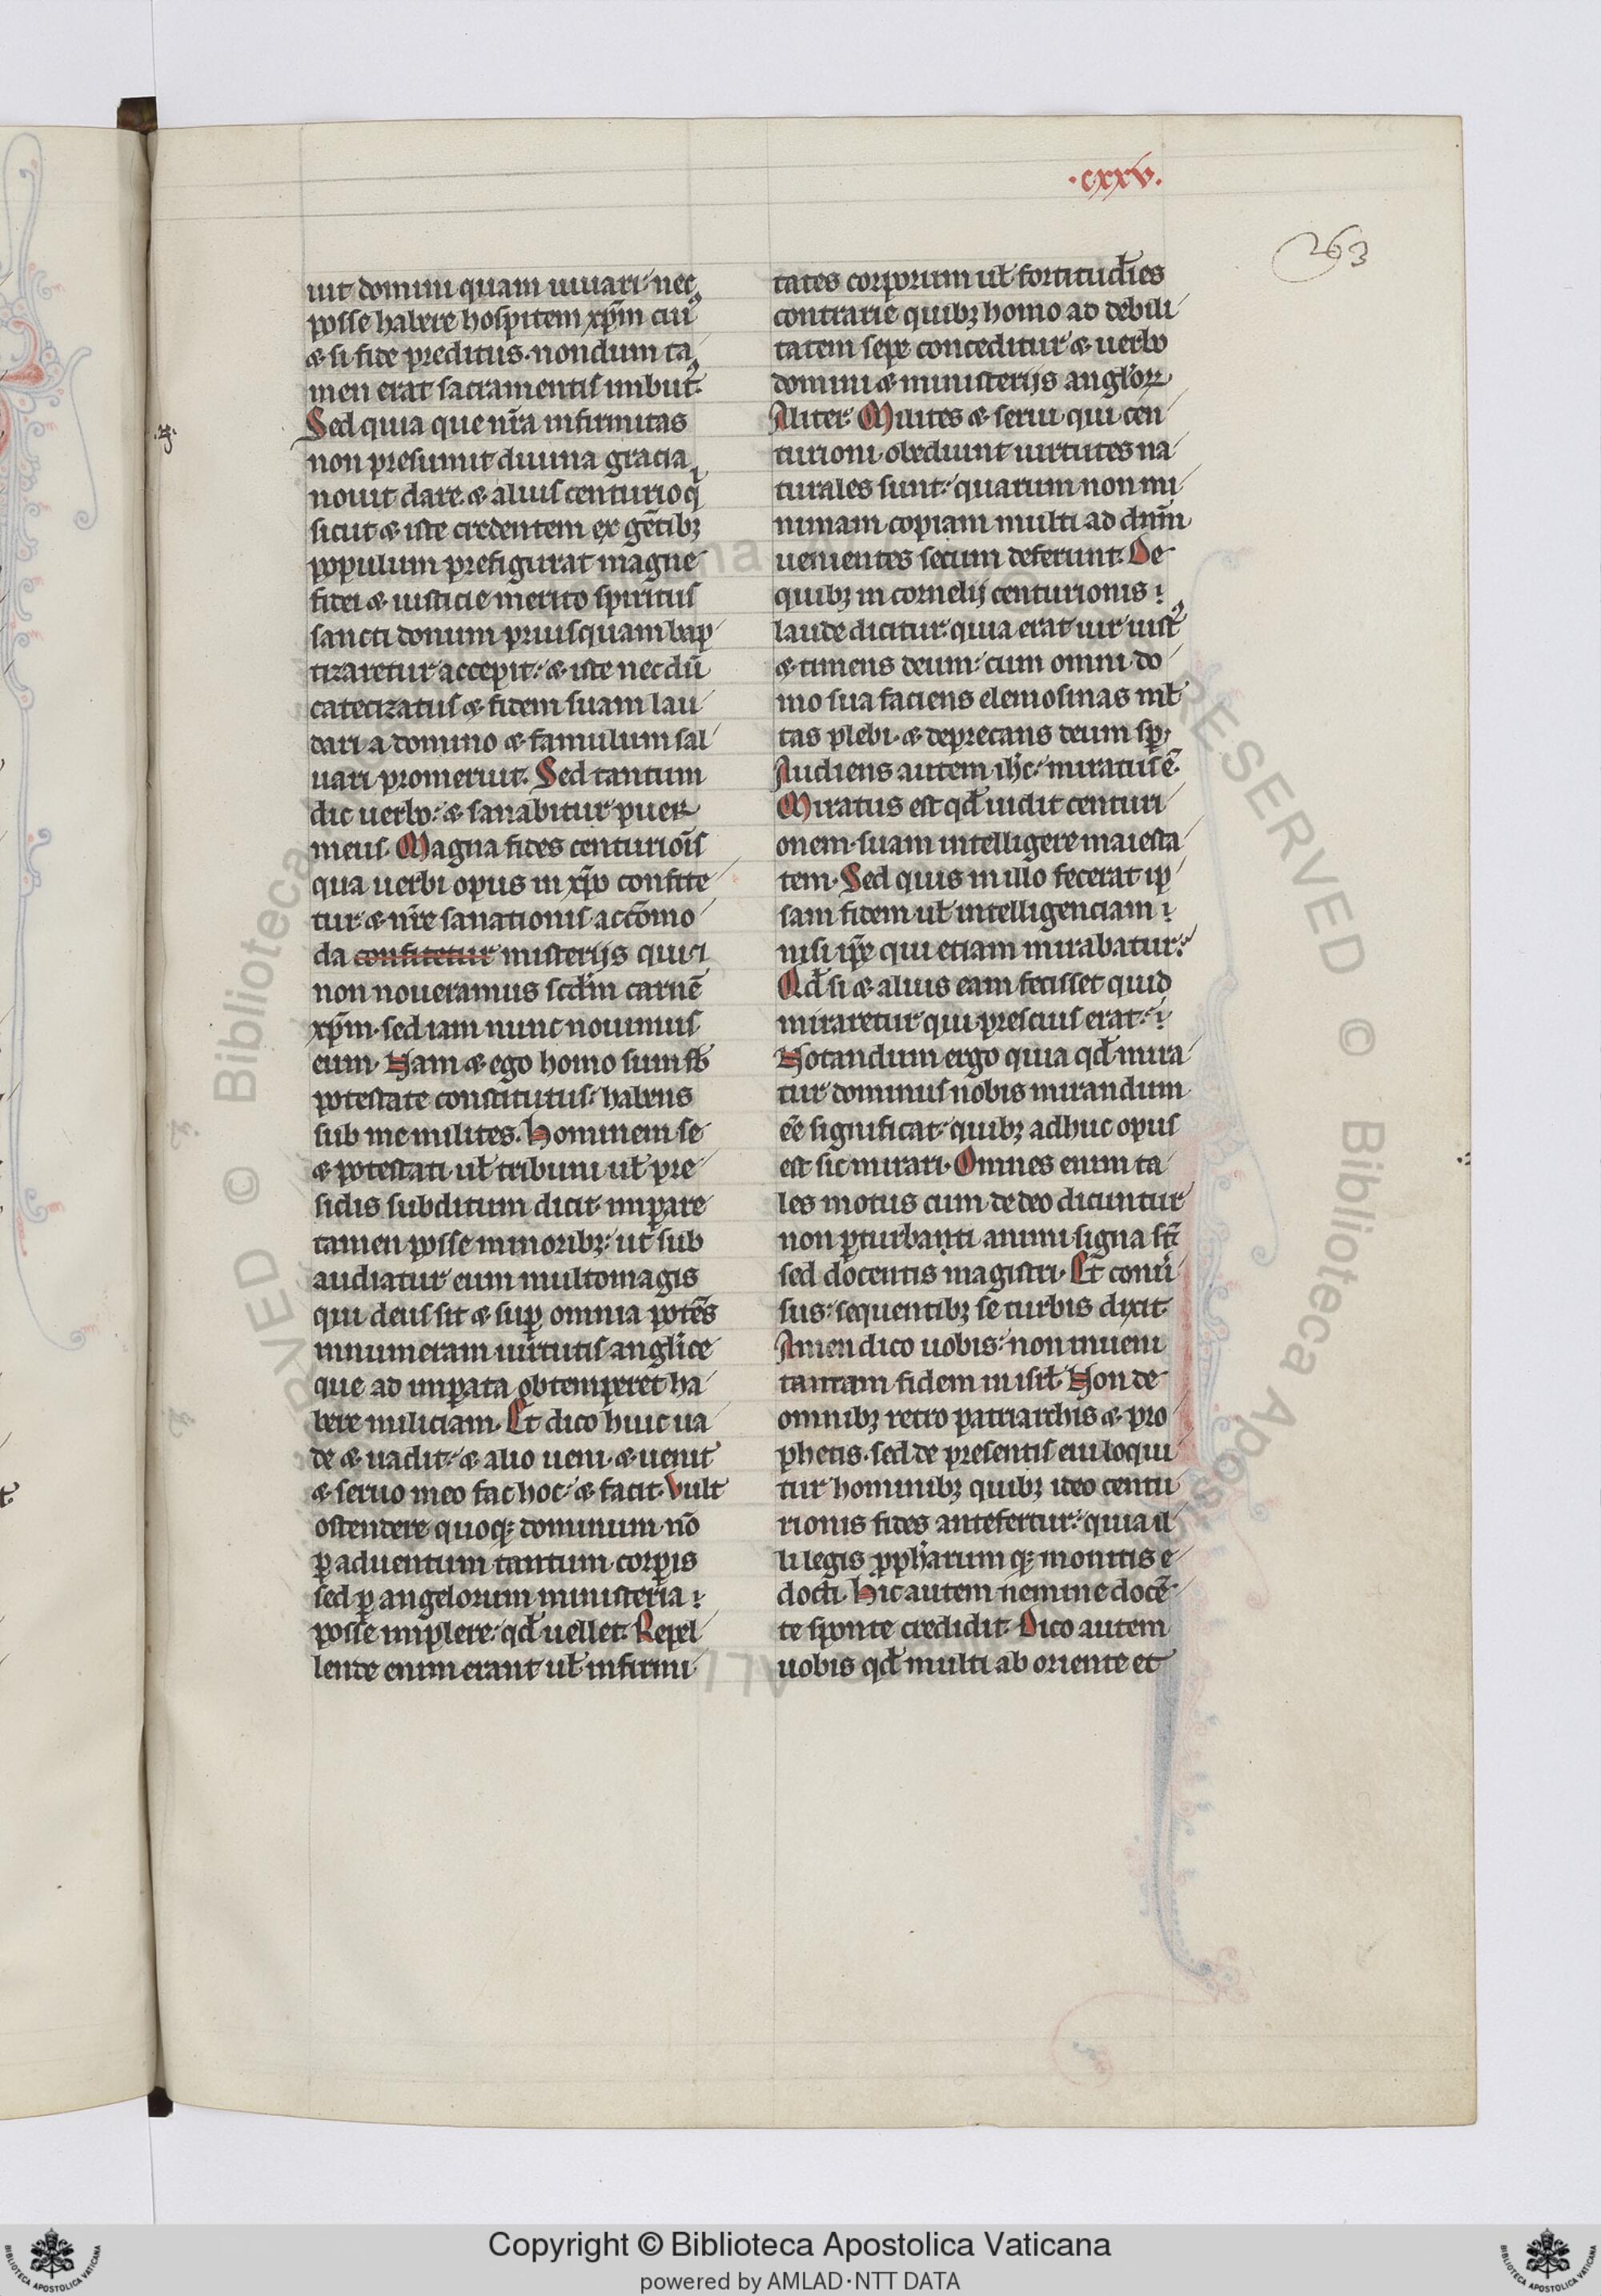 ·cxxv·
263
uit domini quam iuuari nec
posse habere hospitem xp̄m cui᷒
⁊ si fide preditus· nondum ta
men erat sacramentis imbut᷒·
Sed quia que nr̄a infirmitas
non presumit diuina gracia
nouit dare ⁊ alius centurio qͥ
sicut ⁊ iste credentem ex gētibꝫ
populum prefigurat magne
fidei ⁊ iusticie merito spiritus
sancti donum priusquam bap
tizaretur accepit· ⁊ iste necdū
catecizatus ⁊ fidem suam lau
dari a domino ⁊ famulum sal
uari promeruit. Sed tantum
dic uerbo· ⁊ sanabitur puer
meus. Magna fides centuriōis
qua uerbi opus in xp̄o confite
tur ⁊ nr̄e sanationis accōmo
da confitetur misterijs qui ⁊
non noueramus scd̄m carnē
xp̄m· sed iam nunc nouimus
eum· Nam ⁊ ego homo sum sb̄
potestate constitutus· habens
sub me milites. Hominem se
⁊ potestati ul̄ tribuni ul̄ pre
sidis subditum dicit imꝑare
tamen posse minoribꝫ· ut sub
audiatur eum multomagis
qui deus sit ⁊ suꝑ omnia potēs
innumeram uirtutis anglīce
que ad imꝑata obtemperet ha
bere miliciam· Et dico huic ua
de ⁊ uadit· ⁊ alio ueni· ⁊ uenit
⁊ seruo meo fac hoc· ⁊ facit· Vult
ostendere quoqꝫ dominum nō
ꝑ aduentum tantum corꝑis
sed ꝑ angelorum ministeria
posse implere· qd̄ uellet. Repel
lende enim erant ul̄ infirmi
tates corporum ul̄ fortitudīes
contrarie quibꝫ homo ad debili
tatem sepe conceditur ⁊ uerbo
domini ⁊ ministerijs anglōꝝ
Aliter· Milites ⁊ serui qui cen
turioni obediunt uirtutes na
turales sunt· quarum non mi
nimam copiam multi ad dn̄m
uenientes secum deferunt. De
quibꝫ in cornelij centurionis
laude dicitur· quia erat uir iust᷒
⁊ timens deum· cum omni do
mo sua faciens elemosinas ml̄
tas plebi· ⁊ deprecans deum sꝑ·
Audiens autem ih̄c· miratus ē·
Miratus est qd̄ uidit centuri
onem suam intelligere maiesta
tem· Sed quis in illo fecerat ip
sam fidem ul̄ intelligenciam
nisi ip̄e qui etiam mirabatur·
Qd̄ si ⁊ alius eam fecisset quid
miraretur qui prescius erat·
Notandum ergo quia qd̄ mira
tur dominus nobis mirandum
eē significat· quibꝫ adhuc opus
est sic mirari· Omnes enim ta
les motus cum de deo dicuntur
non ꝑturbanti animi signa st̄
sed docentis magistri· Et conuͥ
sus· sequentibꝫ se turbis dixit
Amen dico uobis· non inueni
tantam fidem in isrl̄· Non de
omnibꝫ retro patriarchis ⁊ pro
phetis· sed de presentis eui loqui
tur hominibꝫ quibꝫ ideo centu
rionis fides antefertur· quia il
li legis ꝓph̄arum qꝫ monitis e
docti· Hic autem nemine docē
te sponte credidit· Dico autem
uobis qd̄ multi ab oriente et
Copyright © Biblioteca Apostolica Vaticana
powered by AMLAD·NTT DATA